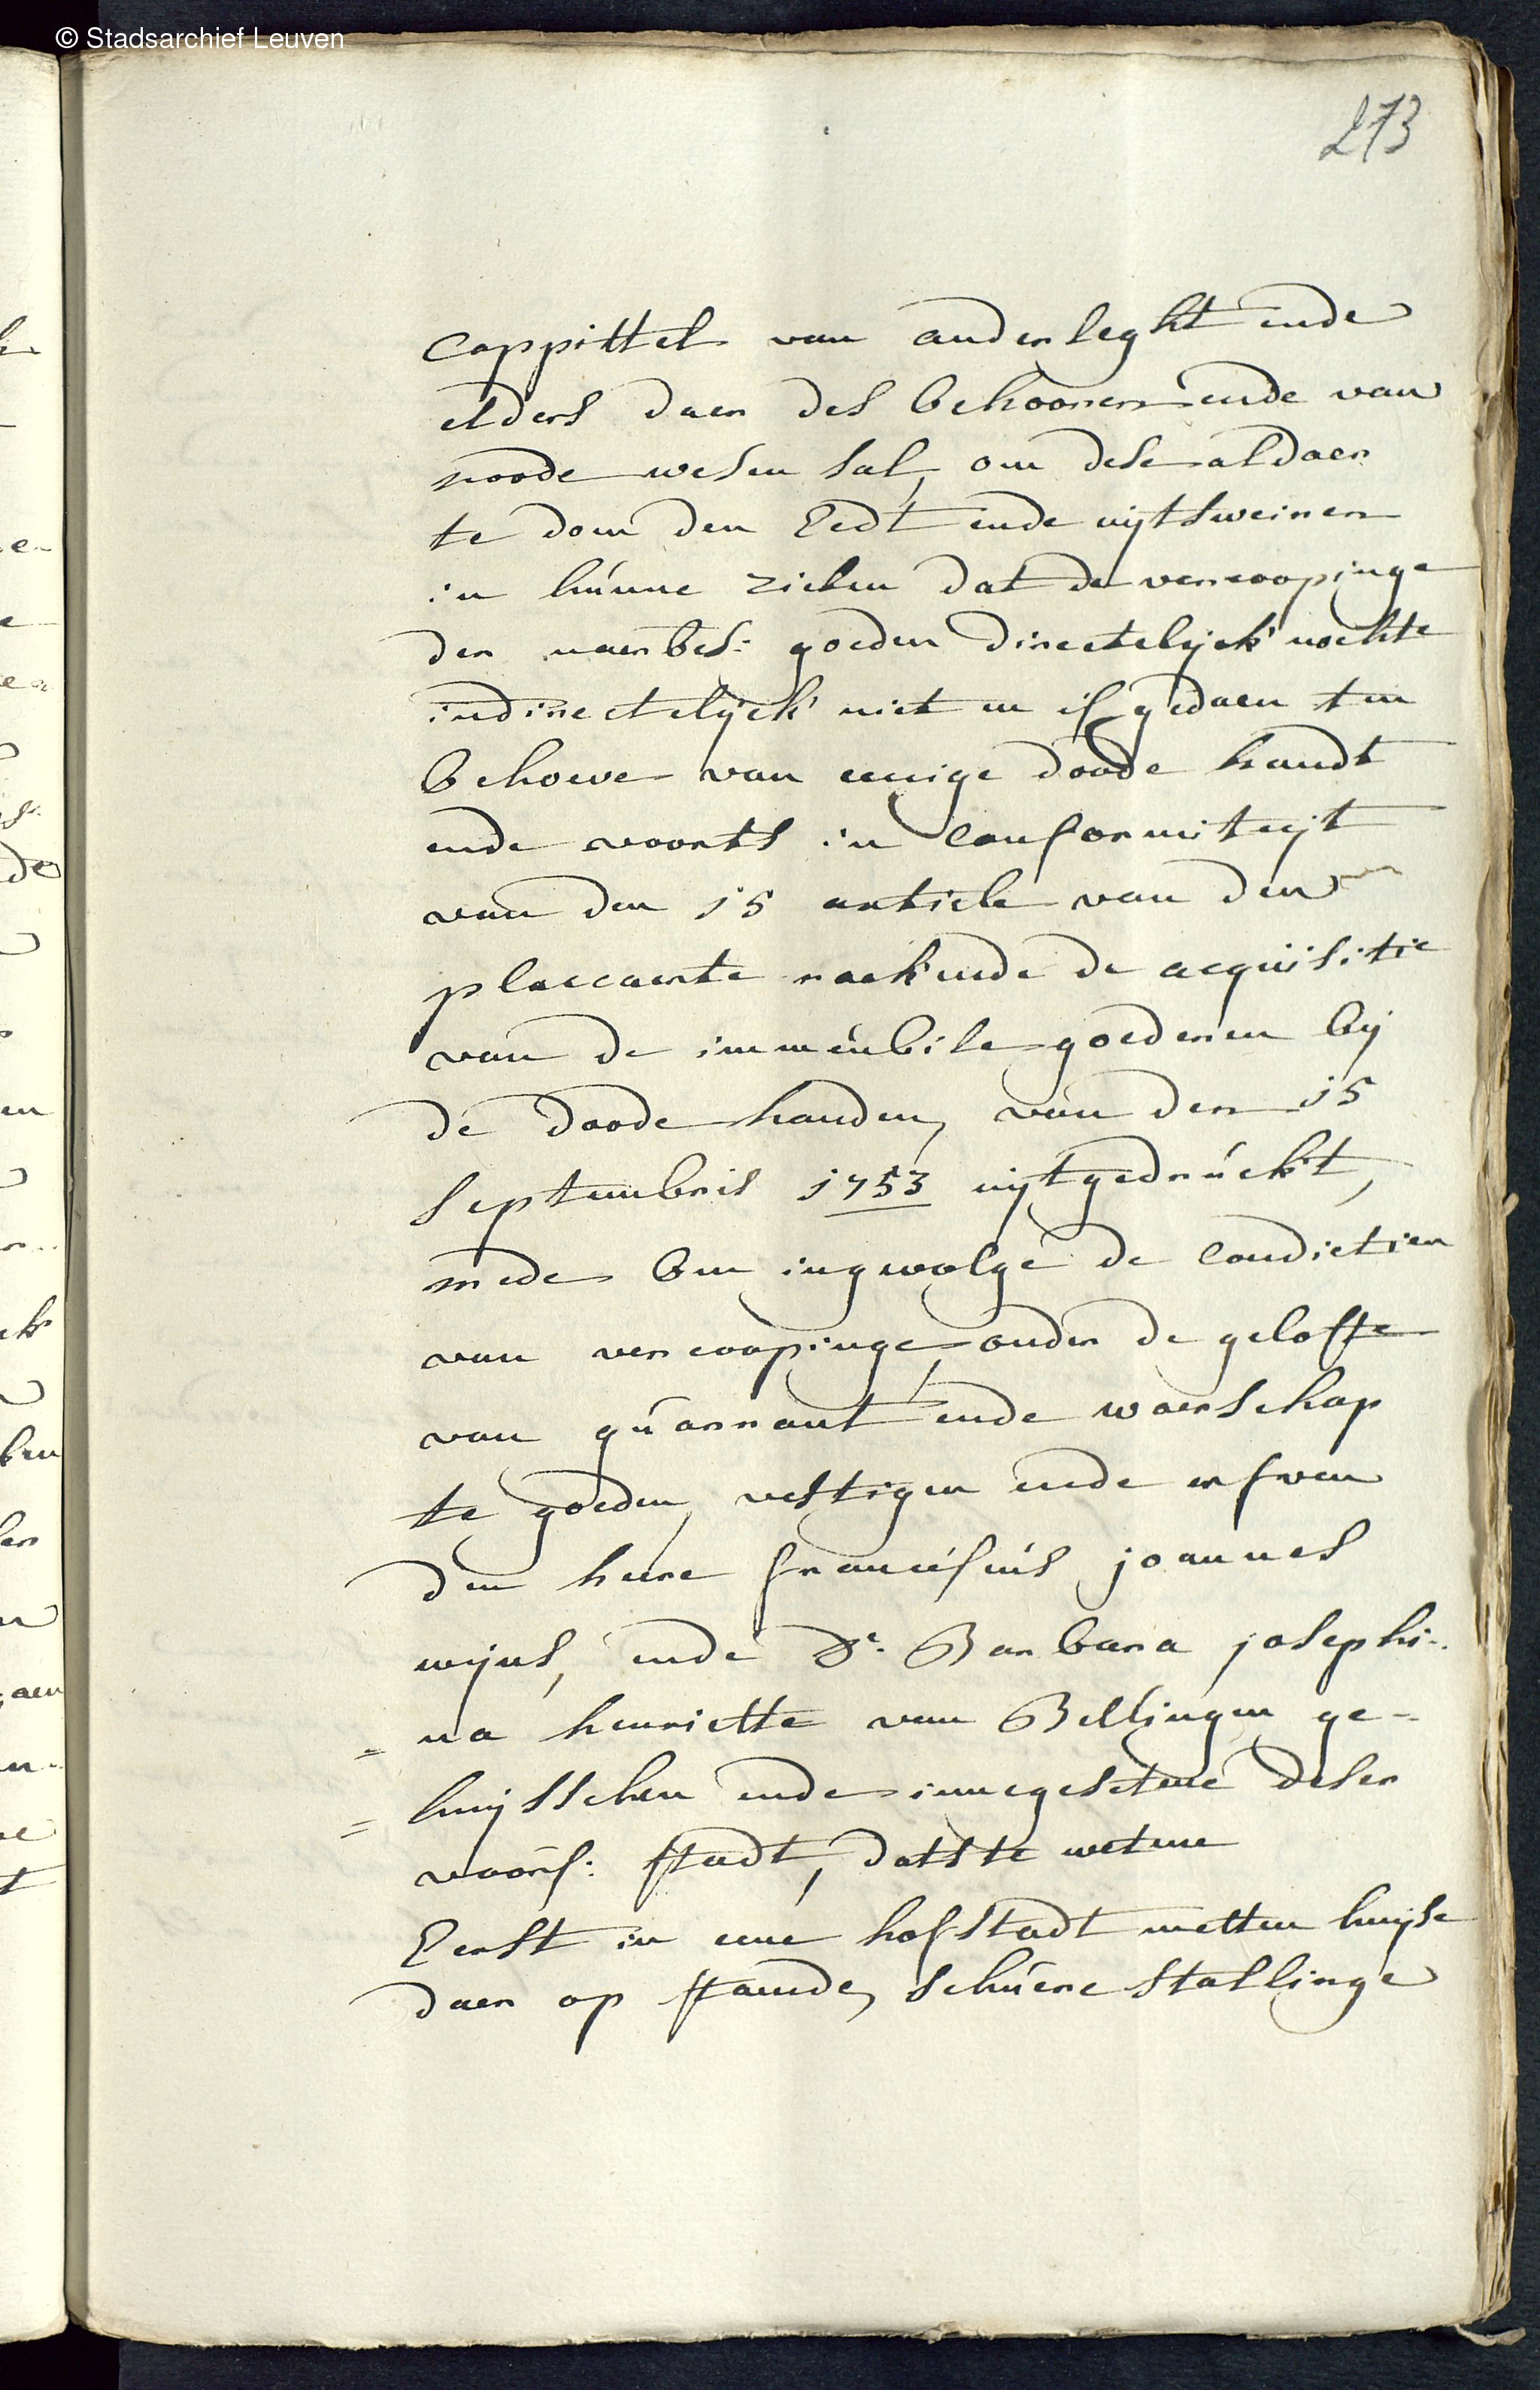 © Stadsarchief Leuven
273
Cappittel van anderleght ende
elders daer des behooren ende van
noode wesen sal, om dese aldaer
te doen den Eedt ende uijtsweiren
in hunne zielen dat de vercoopinge
der naerbes: goeden directelijck nochte
indirectelijck niet en is gedaen ten
behoeve van eenige doode handt
ende voorts in conformiteijt
van den 15 article van den
placcaerte raekende de acquisitie
van de immeubile goederen bij
de doode handen, van den 15
septembris 1753 uijtgedruckt,
mede om ingevolge de condictien
van vercoopinge, onder de gelofte
van guarrant ende waerschap
te goeden, vestigen ende erfven
den heere francisus joannes
wijns, ende Je. Barbara josephi-
=na henriette van Bellingen ge-
=huijsschen ende innegesetene deser
voors: stadt, datste wetene
Eerst in eene hofstadt metten huijse
daer op staende, schuere stallinge